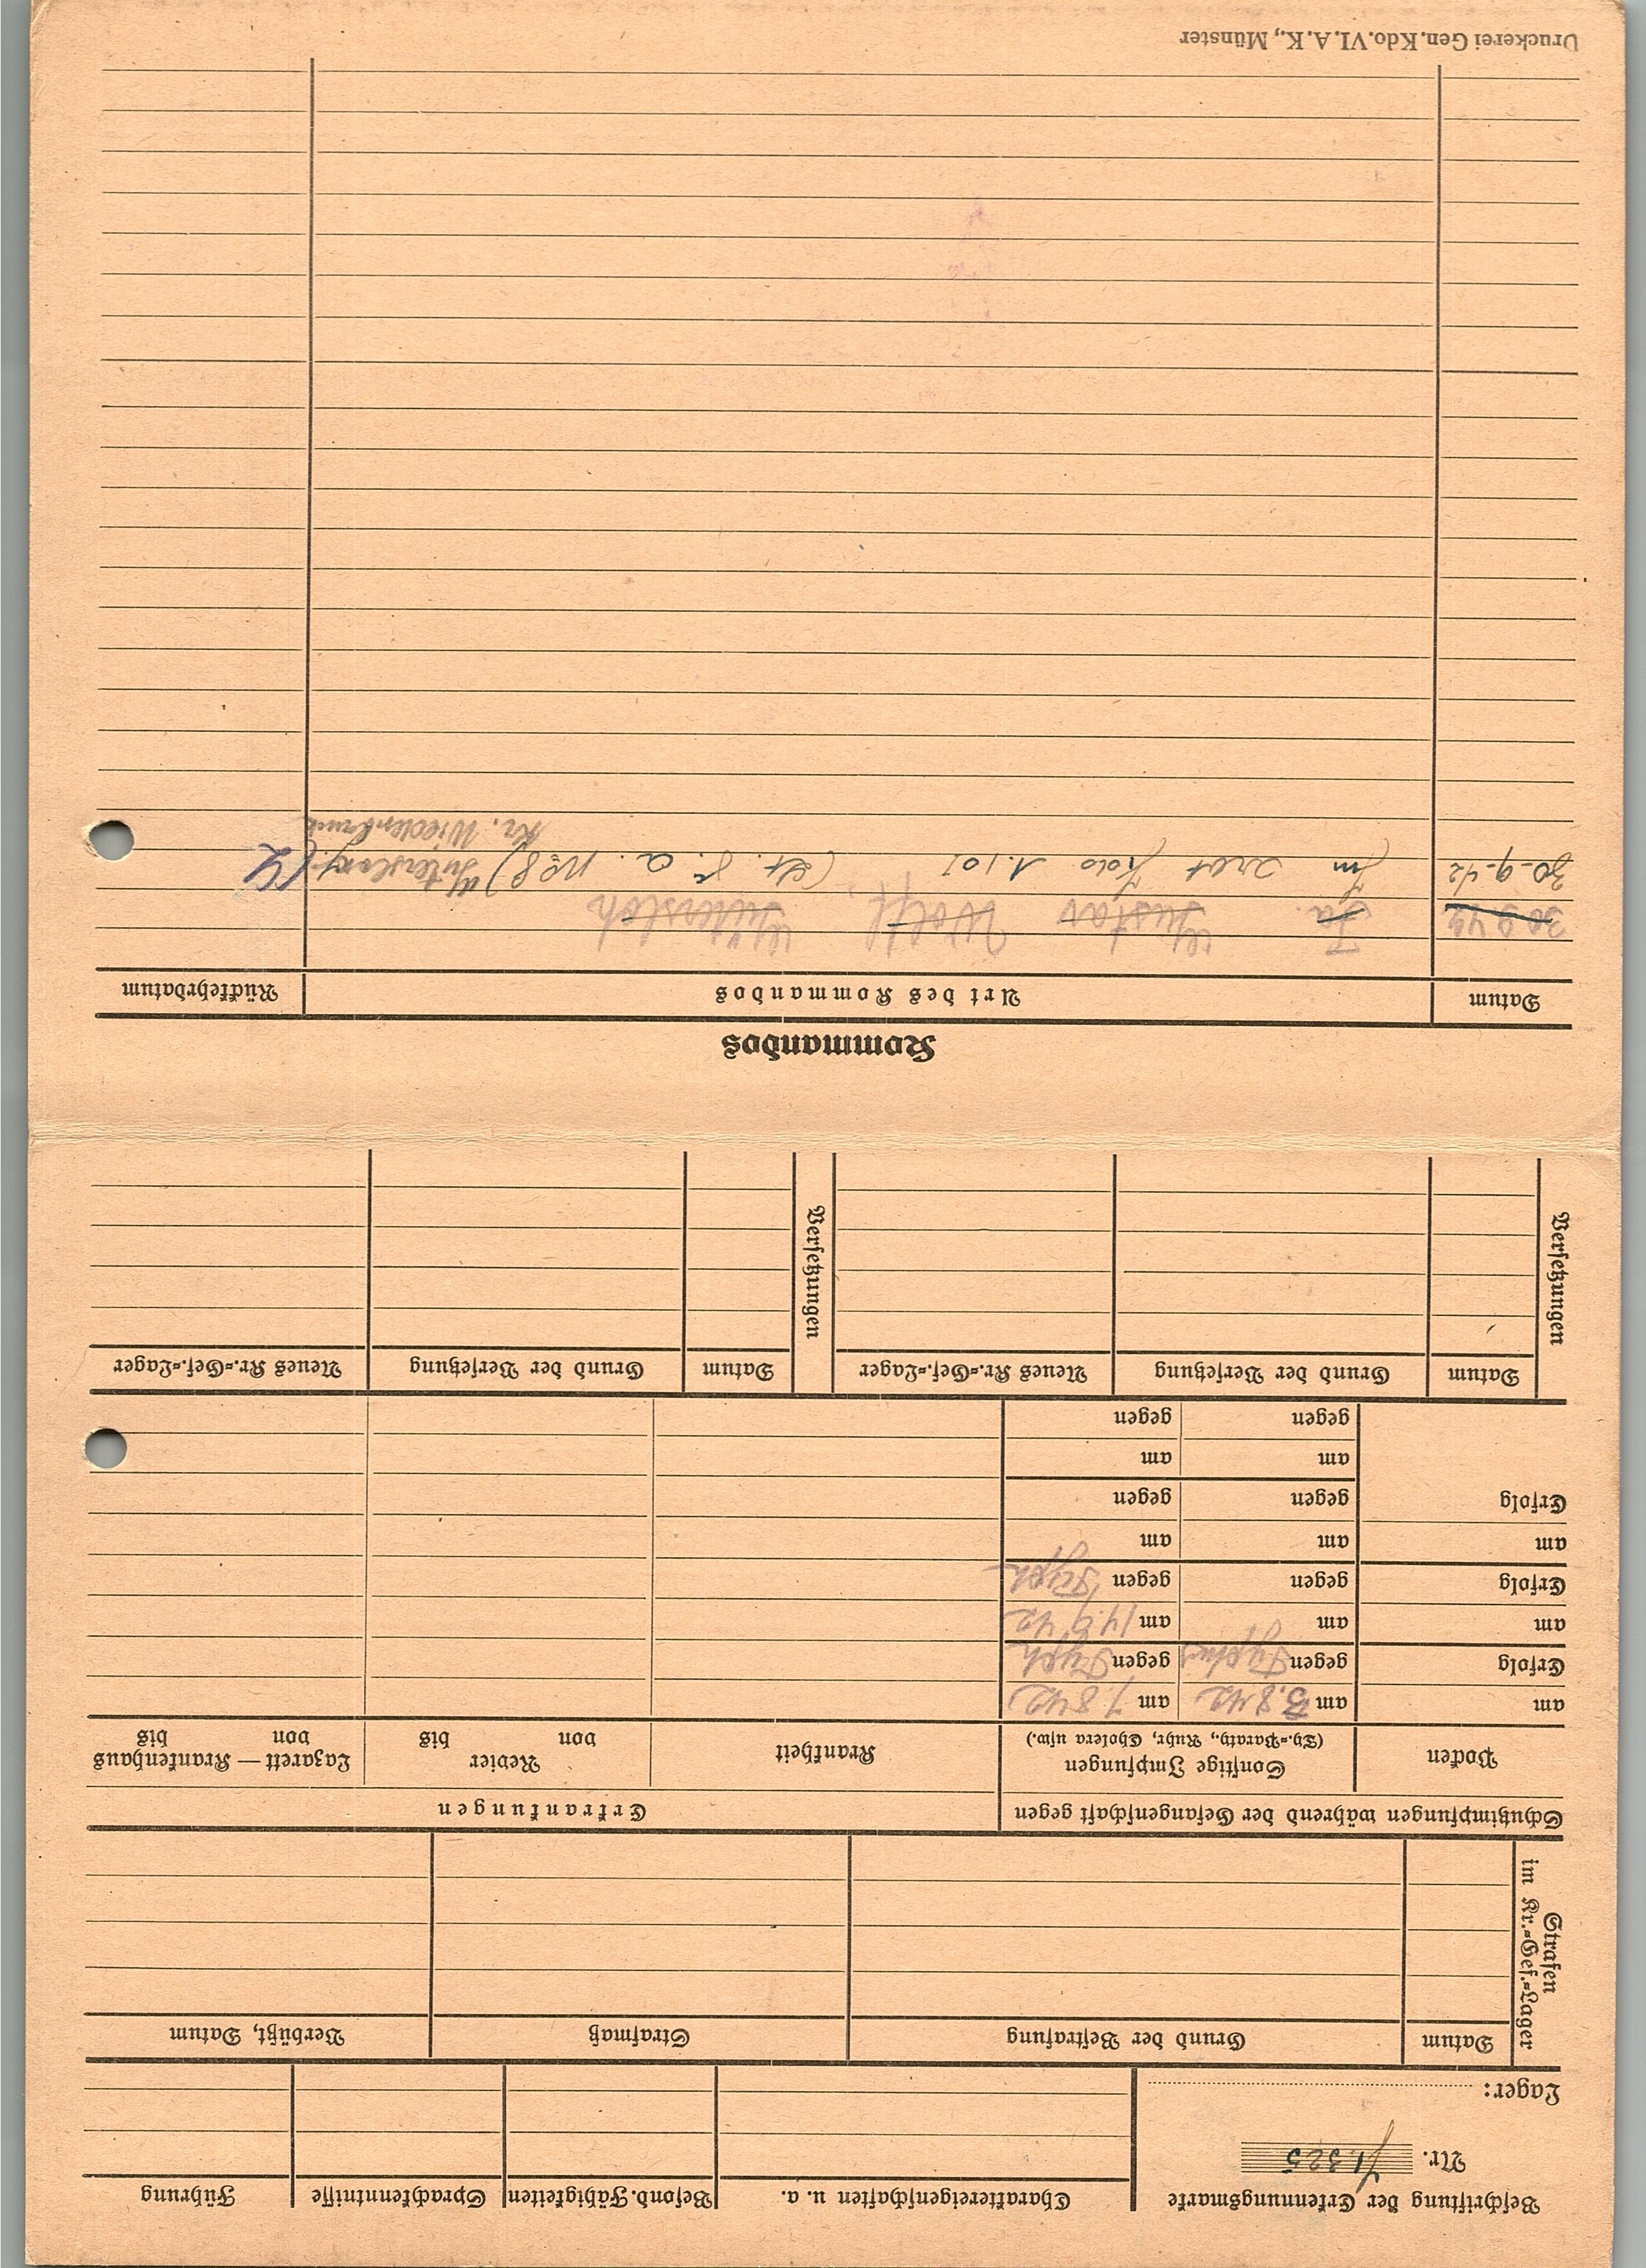 Beschriftung der Erkennungsmarke
Nr. 71325
Lager:
Charaktereigenschaften u. a.
Besond. Fähigkeiten
Sprachkenntnisse
Führung
Strafen
im Kr.-Gef.-Lager
Datum
Grund der Bestrafung
Strafmaß
Verbüßt, Datum
Schutzimpfungen während der Gefangenschaft gegen
Erkrankungen
Pocken
Sonstige Impfungen
(Ty.-Paraty., Ruhr, Cholera usw.)
Krankheit
Revier
von bis
Lazarett — Krankenhaus
von bis
am
am 3.8.42
am 7.8.42
Erfolg
gegen Typhus
gegen Typh
am
am
am 14.8.42
Erfolg
gegen
gegen Typh
am
am
am
Erfolg
gegen
gegen
am
am
gegen
gegen
Versetzungen
Datum
Grund der Versetzung
Neues Kr.-Gef.-Lager
Versetzungen
Datum
Grund der Versetzung
Neues Kr.-Gef.-Lager
Kommandos
Datum
Art des Kommandos
Rückkehrdatum
30.9.42 Fa. Gustav Wolff, Gütersloh
30.9.42 Im
Kr. Wiedenbrück
Druckerei Gen. Kdo. VI. A. K., Münster